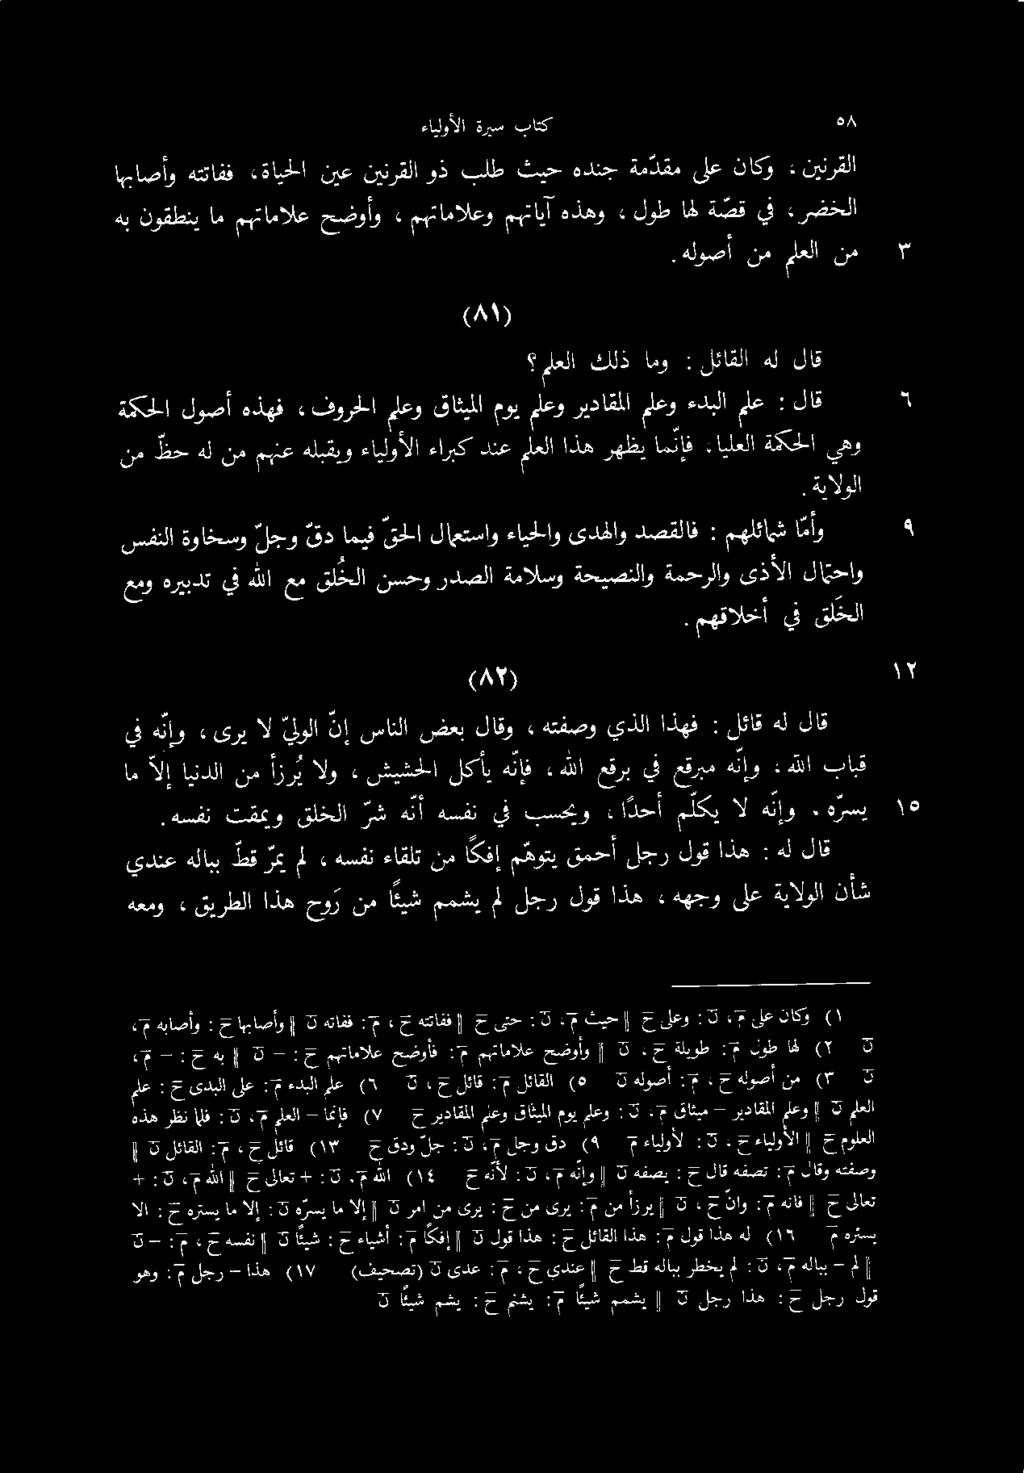 ٥٨
كتاب سيرة الأولياء
القرنين، وكان على مقدّمة جنده حيث طلب ذو القرنين عين الحياة، ففاتته وأصابها
الخضر، في قصّة لها طول، وهذه آياتهم وعلاماتهم، وأوضح علاماتهم ما ينطقون به
٣ من العلم من أصوله.
(٨١)
قال له القائل: وما ذلك العلم؟
٦ قال: علم البدء وعلم المقادير وعلم يوم الميثاق وعلم الحروف، فهذه أصول الحكمة
وهي الحكمة العليا، فإنّما يظهر هذا العلم عند كبراء الأولياء ويقبله عنهم من له حظّ من
الولاية.
٩ وأمّا شمائلهم: فالقصد والهدى والحياء واستعمال الحقّ فيما دقّ وجلّ وسخاوة النفس
واحتمال الأذى والرحمة والنصيحة وسلامة الصدر وحسن الخُلق مع اللّٰه في تدبيره ومع
الخَلق في أخلاقهم.
١٢ (٨٢)
قال له قائل: فهذا الذي وصفته، وقال بعض الناس إنّ الوليّ لا يرى، وإنّه في
قباب اللّٰه، وإنّه مبرقع في برقع اللّٰه، فإنّه يأكل الحشيش، ولا يُرزأ من الدنيا إلاّ ما
١٥ يسرّه. وإنّه لا يكلّم أحدًا، ويحسب في نفسه أنّه شرّ الخلق ويمقت نفسه.
قال له: هذا قول رجل أحمق يتوهّم إفكًا من تلقاء نفسه، لم يمرّ قطّ بباله عندي
شأن الولاية على وجهه، هذا قول رجل لم يشمم شيئًا من رَوح هذا الطريق، ومعه
١) وكان على م، ن: وعلى ح ‖ حيث م، ن: حتى ح ‖ ففاتته ح، م: ففاته ن ‖ وأصابها ح: وأصابه م،
ن ٢) لها طول م: طويلة ح، ن ‖ وأوضح علاماتهم م: فأوضح علاماتهم ح: – ن ‖ به ح: – م،
ن ٣) من أصوله ح، م: أصوله ن ٥) القائل م: قائل ح، ن ٦) علم البدء م: على البدى ح: علم
العلم ن ‖ وعلم المقادير – ميثاق م، ن: وعلم يوم الميثاق وعلم المقادير ح ٧) فإنما – العلم م، ن: فلما نظر هذه
العلوم ح ‖ الأولياء ح، ن: لأولياء م ٩) دق وجل م، ن: جل ودق ح ١٣) قائل ح، م: القائل ن ‖
وصفته وقال م: تصفه قال ح: يصفه ن ‖ وإنه م، ن: لأنه ح ١٤) اللّٰه م، ن: + تعالى ح ‖ اللّٰه م، ن: +
تعالى ح ‖ فانه م: وان ح، ن ‖ يرزأ من م: يرى من ح: يرى من امر ن ‖ إلا ما يسره ن: إلا ما يستره ح: الا
يستره م ١٦) له هذا قول م: هذا القائل ح: هذا قول ن ‖ إفكًا م: أشياء ح: شيئًا ن ‖ نفسه ح، م: – ن
‖ لم – بباله م، ن: لم يخطر بباله قط ح ‖ عندي ح، م: عدى ن (تصحيف) ١٧) هذا – رجل م: وهو
قول رجل ح: هذا رجل ن ‖ يشمم شيئًا م: ينشم ح: يشم شيئًا ن